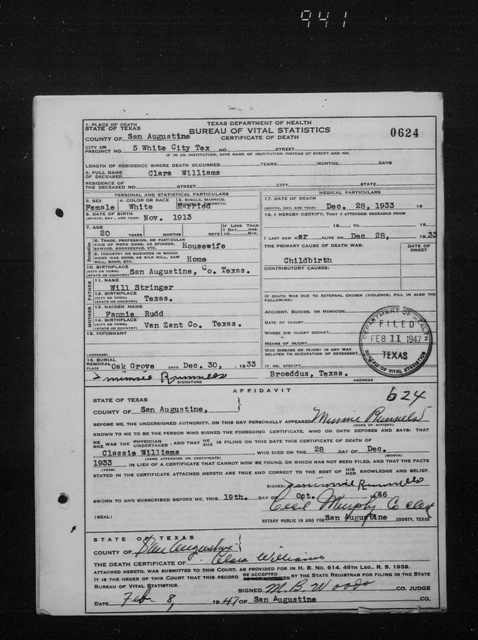 941
1. PLACE OF DEATH
STATE OF TEXAS
TEXAS DEPARTMENT OF HEALTH
BUREAU OF VITAL STATISTICS
CERTIFICATE OF DEATH
0624
COUNTY OF San Augustine
CITY OR PRECINCT NO. 5 White City Tex STREET
LENGTH OF RESIDENCE WHERE DEATH OCCURRED YEARS MONTHS DAYS
2. FULL NAME OF DECEASED Clara Williams
RESIDENCE OF THE DECEASED STREET NO.
PERSONAL AND STATISTICAL PARTICULARS
MEDICAL PARTICULARS
3. SEX Female
4. COLOR OR RACE White
Married
17. DATE OF DEATH Dec. 28, 1933
6. DATE OF BIRTH Nov. 1913
18. I HEREBY CERTIFY, THAT I ATTENDED DECEASED FROM
7. AGE 20 YEARS MONTHS DAYS
I LAST SAW her ALIVE ON Dec 28, 1933
Housewife
THE PRIMARY CAUSE OF DEATH WAS:
DATE OF ONSET
Home
Childbirth
CONTRIBUTORY CAUSES:
10. BIRTHPLACE San Augustine, Co. Texas.
FATHER
11. NAME Will Stringer
12. BIRTHPLACE Texas.
IF DEATH WAS DUE TO EXTERNAL CAUSES (VIOLENCE) FILL IN ALSO THE FOLLOWING:
ACCIDENT, SUICIDE, OR HOMICIDE
MOTHER
13. MAIDEN NAME Fannie Rudd
DATE OF INJURY
14. BIRTHPLACE Van Zant Co. Texas.
WHERE DID INJURY OCCUR
MEANS OF INJURY
FILED
FEB 11 1947
TEXAS
15. INFORMANT
16. BURIAL
PLACE Oak Grove DATE Dec. 30, 1933
IF SO, SPECIFY
SIGNATURE
Broaddus, Texas.
ADDRESS
AFFIDAVIT
624
STATE OF TEXAS
COUNTY OF San Augustine,
BEFORE ME, THE UNDERSIGNED AUTHORITY, ON THIS DAY PERSONALLY APPEARED Minnie Runnels
KNOWN TO ME TO BE THE PERSON WHO SIGNED THE FOREGOING CERTIFICATE, WHO ON OATH DEPOSES AND SAYS: THAT
HE WAS THE PHYSICIAN UNDERTAKER AND THAT HE IS FILING ON THIS DATE THIS CERTIFICATE OF DEATH OF
Classie Williams, WHO DIED ON THE 28 DAY OF Dec.
1933, IN LIEU OF A CERTIFICATE THAT CANNOT NOW BE FOUND, OR WHICH HAS NOT BEEN FILED, AND THAT THE FACTS
STATED IN THE CERTIFICATE ATTACHED HERETO ARE TRUE AND CORRECT TO THE BEST OF HIS HER KNOWLEDGE AND BELIEF.
SIGNED Minnie Runnels
SWORN TO AND SUBSCRIBED BEFORE ME, THIS 19th. DAY OF Oct.
Cecil Murphy Co Clerk
(SEAL)
NOTARY PUBLIC IN AND FOR San Augustine COUNTY, TEXAS
STATE OF TEXAS
COUNTY OF San Augustine
THE DEATH CERTIFICATE OF Clara Williams
ATTACHED HERETO, WAS SUBMITTED TO THIS COURT, AS PROVIDED FOR IN H. B. 614, 46TH LEG. R. S. 1939.
IT IS THE ORDER OF THIS COURT THAT THIS RECORD BE ACCEPTED BY THE STATE REGISTRAR FOR FILING IN THE STATE
BUREAU OF VITAL STATISTICS. SIGNED M. B. Woods CO. JUDGE
DATE Feb 8, 1947 OF San Augustine COUNTY